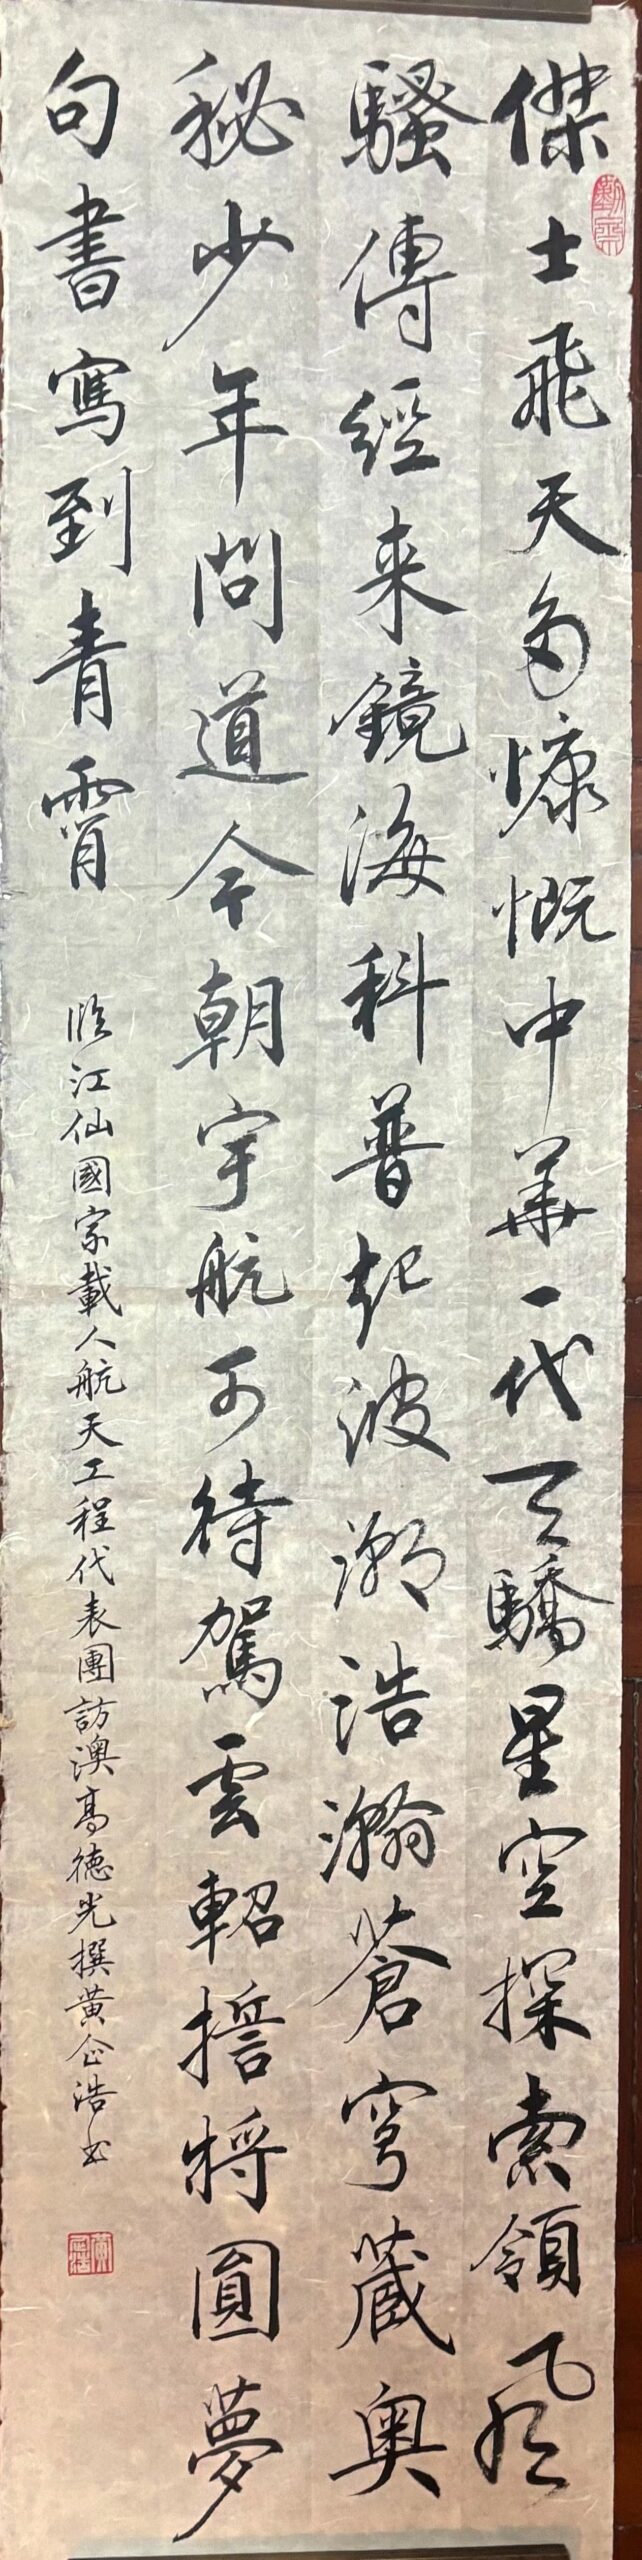 傑士飛天多慷慨中華一代天驕星空探索領風
騷傳經来鏡海科普起波潮浩瀚蒼穹藏奧
秘少年問道今朝宇航可待駕雲軺誓將圓夢
句書寫到青霄
臨江仙國家載人航天工程代表團訪澳高德光撰黃企浩书